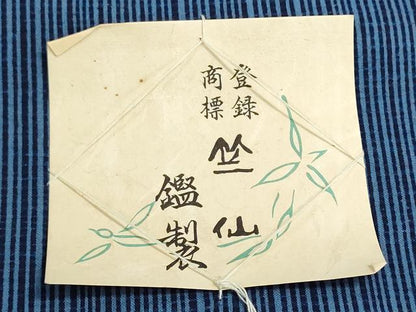 登録
商標
竺仙
鑑製